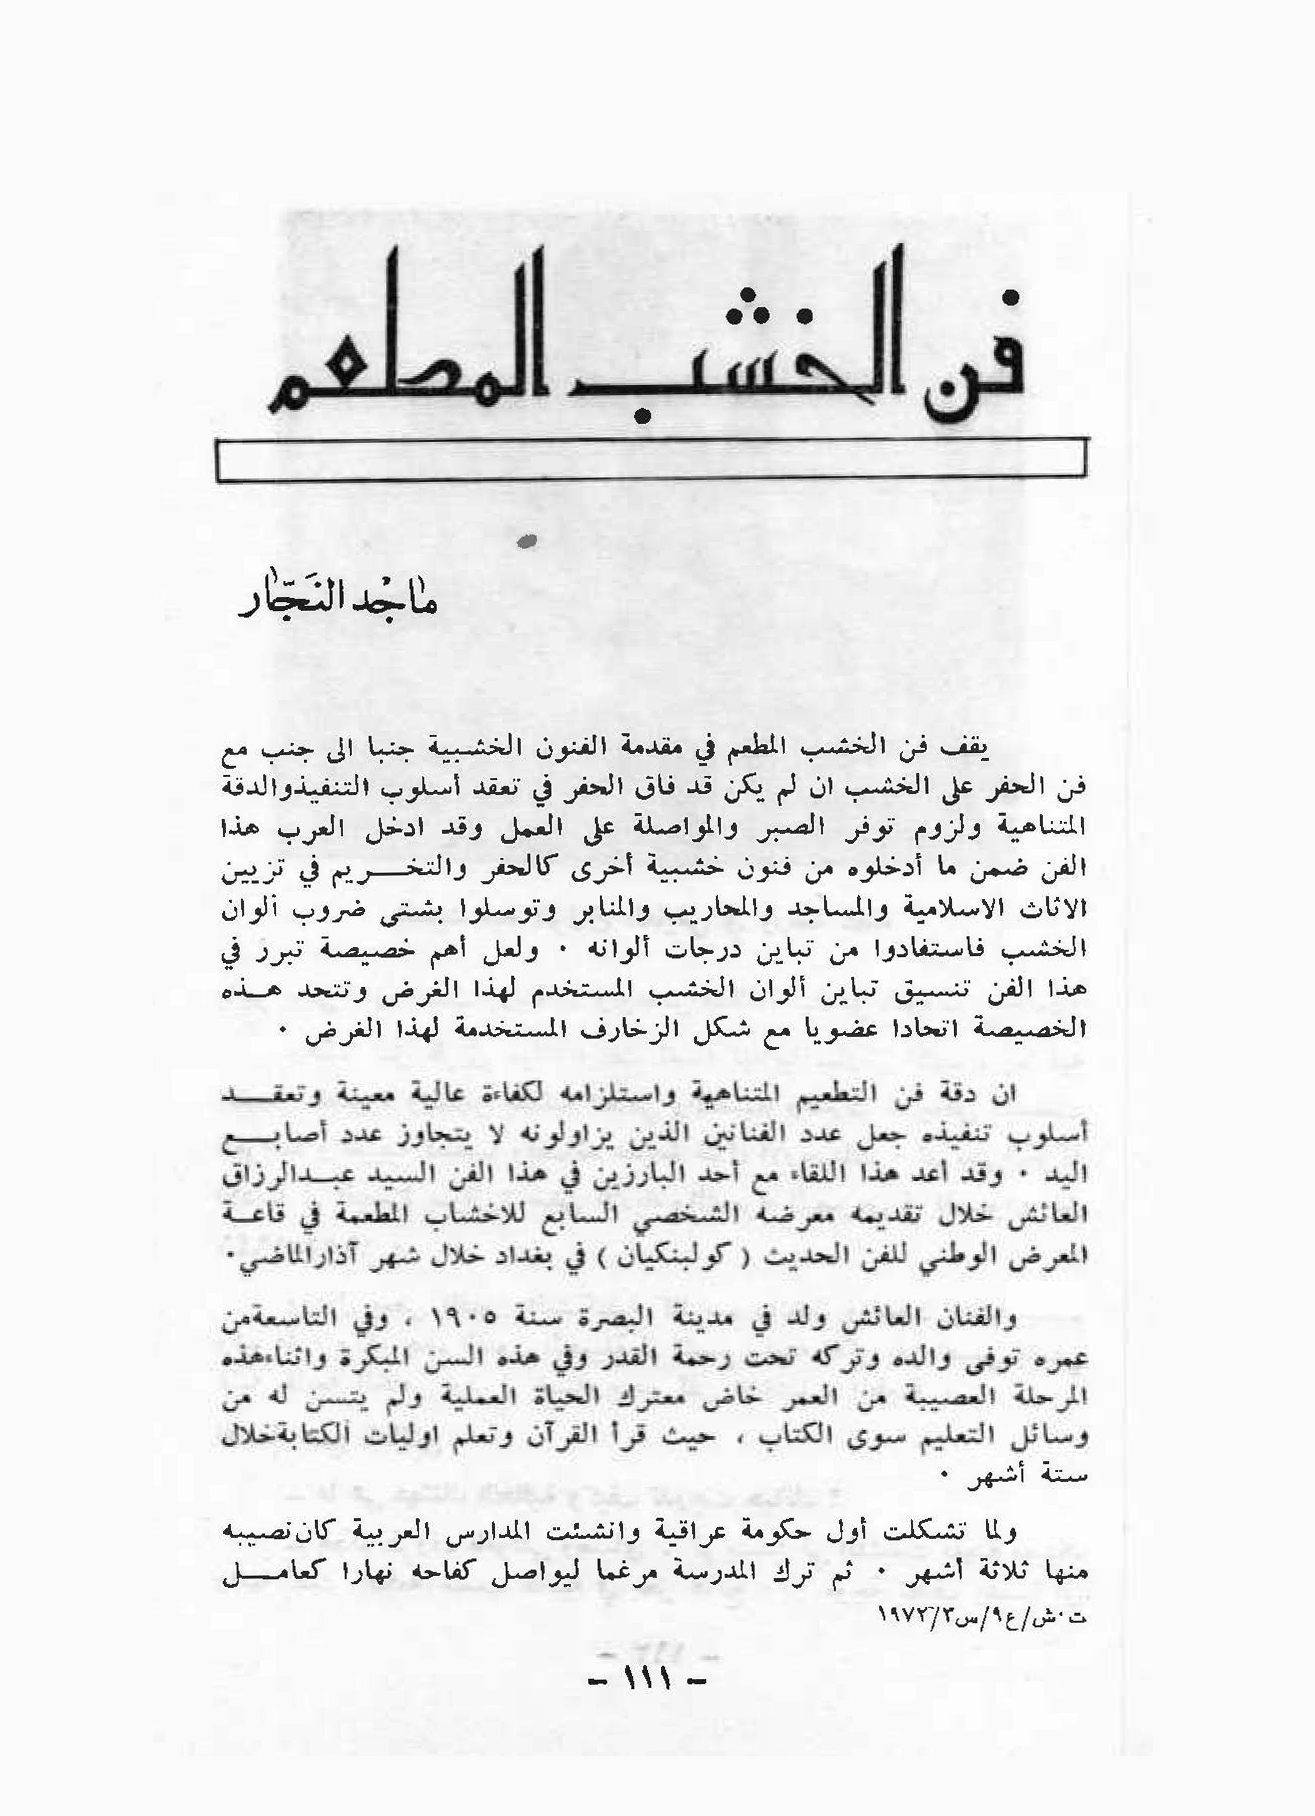 فن الخشب المطعم
ماجد النجّار
يقف فن الخشب المطعم في مقدمة الفنون الخشبية جنبا الى جنب مع
فن الحفر على الخشب ان لم يكن قد فاق الحفر في تعقد أسلوب التنفيذوالدقة
المتناهية ولزوم توفر الصبر والمواصلة على العمل وقد ادخل العرب هذا
الفن ضمن ما أدخلوه من فنون خشبية أخرى كالحفر والتخـــريم في تزيين
الاثاث الاسلامية والمساجد والمحاريب والمنابر وتوسلوا بشتى ضروب ألوان
الخشب فاستفادوا من تباين درجات ألوانه ٠ ولعل أهم خصيصة تبرز في
هذا الفن تنسيق تباين ألوان الخشب المستخدم لهذا الغرض وتتحد هـذه
الخصيصة اتحادا عضويا مع شكل الزخارف المستخدمة لهذا الغرض ٠
ان دقة فن التطعيم المتناهية واستلزامه لكفاءة عالية معينة وتعقـــد
أسلوب تنفيذه جعل عدد الفنانين الذين يزاولونه لا يتجاوز عدد أصابـــع
اليد ٠ وقد أعد هذا اللقاء مع أحد البارزين في هذا الفن السيد عبـدالرزاق
العائش خلال تقديمه معرضه الشخصي السابع للاخشاب المطعمة في قاعـة
المعرض الوطني للفن الحديث ( كولبنكيان ) في بغداد خلال شهر آذارالماضي٠
والفنان العائش ولد في مدينة البصرة سنة ١٩٠٥ ، وفي التاسعةمن
عمره توفى والده وتركه تحت رحمة القدر وفي هذه السن المبكرة واثناءهذه
المرحلة العصيبة من العمر خاض معترك الحياة العملية ولم يتسن له من
وسائل التعليم سوى الكتاب ، حيث قرأ القرآن وتعلم اوليات الكتابةخلال
ستة أشهر ٠
ولما تشكلت أول حكومة عراقية وانشئت المدارس العربية كان نصيبه
منها ثلاثة أشهر ٠ ثم ترك المدرسة مرغما ليواصل كفاحه نهارا كعامـــل
ت٠ش/ع٩/س٣/١٩٧٢
– ١١١ –